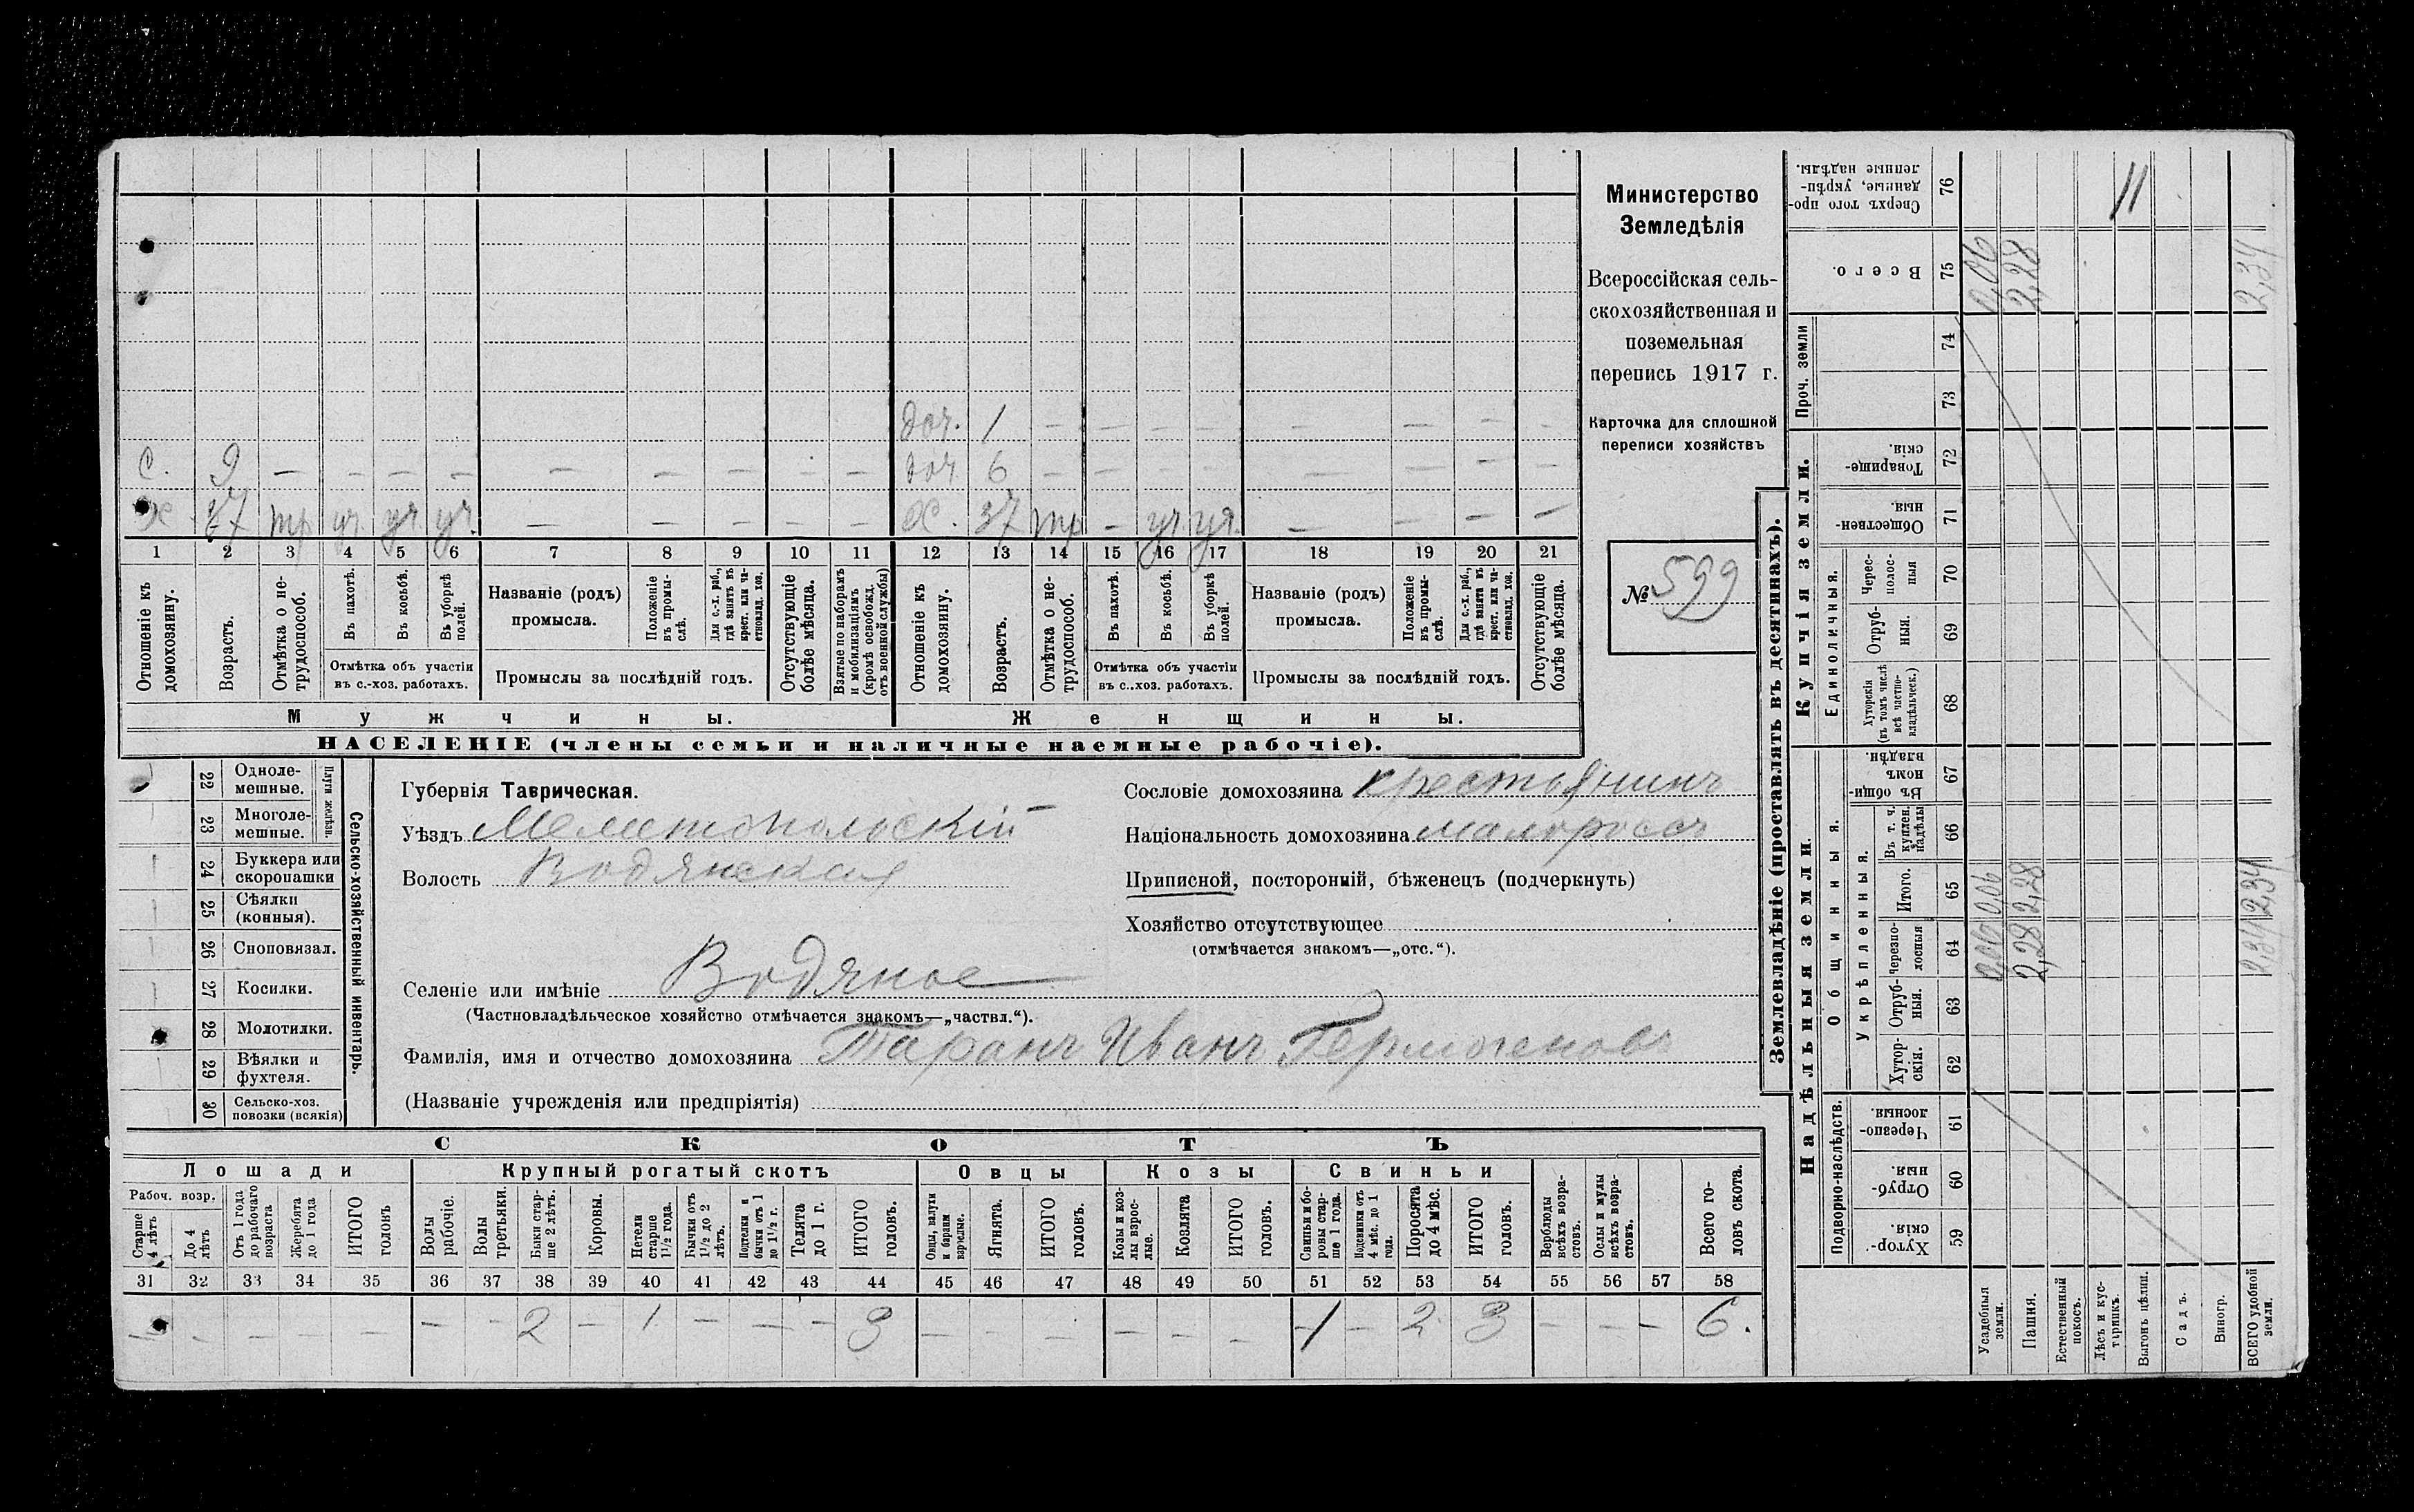 Министерство
Земледѣлія
Всероссійская сель-
скохозяйственная и
поземельная
перепись 1917 г.
Карточка для сплошной
переписи хозяйствъ
№ 599
доч. 1 — — — — — — — —
С. 9 — — — — — — — — — доч 6 — — — — — — — —
Х 37 тр уч. уч. уч. — — — — — Х. 37 тр — уч уч. — — — —
1 2 3 4 5 6 7 8 9 10 11 12 13 14 15 16 17 18 19 20 21
Отношеніе къ домохозяину.
Возрастъ.
Отмѣтка о не-трудоспособ.
Въ пахотѣ.
Въ косьбѣ.
Въ уборкѣ полей.
Отмѣтка объ участіи
въ с.-хоз. работахъ.
Названіе (родъ)
промысла.
Положеніе въ промы-слѣ.
Для с.-х. раб., гдѣ занятъ въ крест. или ча-стновлад. хоз.
Промыслы за послѣдній годъ.
Отсутствующіе болѣе мѣсяца.
Взятые по наборамъ и мобилизаціямъ (кромѣ освобожд. отъ военной службы)
Отношеніе къ домохозяину.
Возрастъ.
Отмѣтка о не-трудоспособ.
Въ пахотѣ.
Въ косьбѣ.
Въ уборкѣ полей.
Отмѣтка объ участіи
въ с.-хоз. работахъ.
Названіе (родъ)
промысла.
Положеніе въ промы-слѣ.
Для с.-х. раб., гдѣ занята въ крест. или ча-стновлад. хоз.
Промыслы за послѣдній годъ.
Отсутствующіе болѣе мѣсяца.
Мужчины. Женщины.
НАСЕЛЕНІЕ (члены семьи и наличные наемные рабочіе).
22 Одноле-мешные.
23 Многоле-мешные.
Плуги желѣзн.
24 Буккера или скоропашки
25 Сѣялки (конныя).
26 Сноповязал.
27 Косилки.
28 Молотилки.
29 Вѣялки и фухтеля.
30 Сельско-хоз. повозки (всякія)
Сельско-хозяйственный инвентарь.
Губернія Таврическая.
Уѣздъ Мелитопольскій
Волость Водянская
Сословіе домохозяина крестьянинъ
Національность домохозяина малороссъ
Приписной, посторонній, бѣженецъ (подчеркнуть)
Хозяйство отсутствующее
(отмѣчается знакомъ—„отс.“).
Селеніе или имѣніе Водяное
(Частновладѣльческое хозяйство отмѣчается знакомъ—„частвл.“).
Фамилія, имя и отчество домохозяина Таранъ Иванъ Гермогеновъ
(Названіе учрежденія или предпріятія)
СКОТЪ
Лошади Крупный рогатый скотъ Овцы Козы Свиньи
Рабоч. возр.
Старше 4 лѣтъ
До 4 лѣтъ
Отъ 1 года до рабочаго возраста
Жеребята до 1 года
ИТОГО головъ
Волы рабочіе.
Волы третьяки.
Быки стар-ше 2 лѣтъ.
Коровы.
Петели старше 1½ года.
Бычки отъ 1½ до 2 лѣтъ.
Подтелки и бычки отъ 1 до 1½ г.
Телята до 1 г.
ИТОГО головъ.
Овцы, валухи и бараны взрослые.
Ягнята.
ИТОГО головъ.
Козы и коз-лы взрос-лые.
Козлята
ИТОГО головъ.
Свиньи и бо-ровы стар-ше 1 года.
Подсвинки отъ 4 мѣс. до 1 года.
Поросята до 4 мѣс.
ИТОГО головъ.
Верблюды всѣхъ возра-стовъ.
Ослы и мулы всѣхъ возра-стовъ.
Всего го-ловъ скота.
31 32 33 34 35 36 37 38 39 40 41 42 43 44 45 46 47 48 49 50 51 52 53 54 55 56 57 58
— — — — — — — 2 — 1 — — — 3 — — — — — — 1 — 2 3 — — — 6.
Землевладѣніе (проставлять въ десятинахъ).
Купчія земли.
Надѣльныя земли.
Сверхъ того про-данные, укрѣп-ленные надѣлы. 76 11
Всего. 75 0,06 2,28 2,34
Проч. земли 74 73
Товарище-скія. 72
Обществен-ныя. 71
Единоличныя.
Черес-полос-ныя 70
Отруб-ныя. 69
Хуторскія (въ томъ числѣ всѣ частно-владѣльческ.) 68
Общинныя.
Въ общин-номъ владѣн. 67
Укрѣпленныя.
Въ т. ч. куплен. надѣлы 66
Итого. 65 0,06 2,28 2,34
Черезпо-лосныя 64 0,06 2,28 2,34
Отруб-ныя. 63
Хутор-скія. 62
Подворно-наслѣдств.
Черезпо-лосныя. 61
Отруб-ныя. 60
Хутор-скія. 59
Усадебныя земли.
Пашня.
Естественный покосъ.
Лѣсъ и кус-тарникъ.
Выгонъ цѣлин.
Садъ.
Виногр.
ВСЕГО удобной земли.